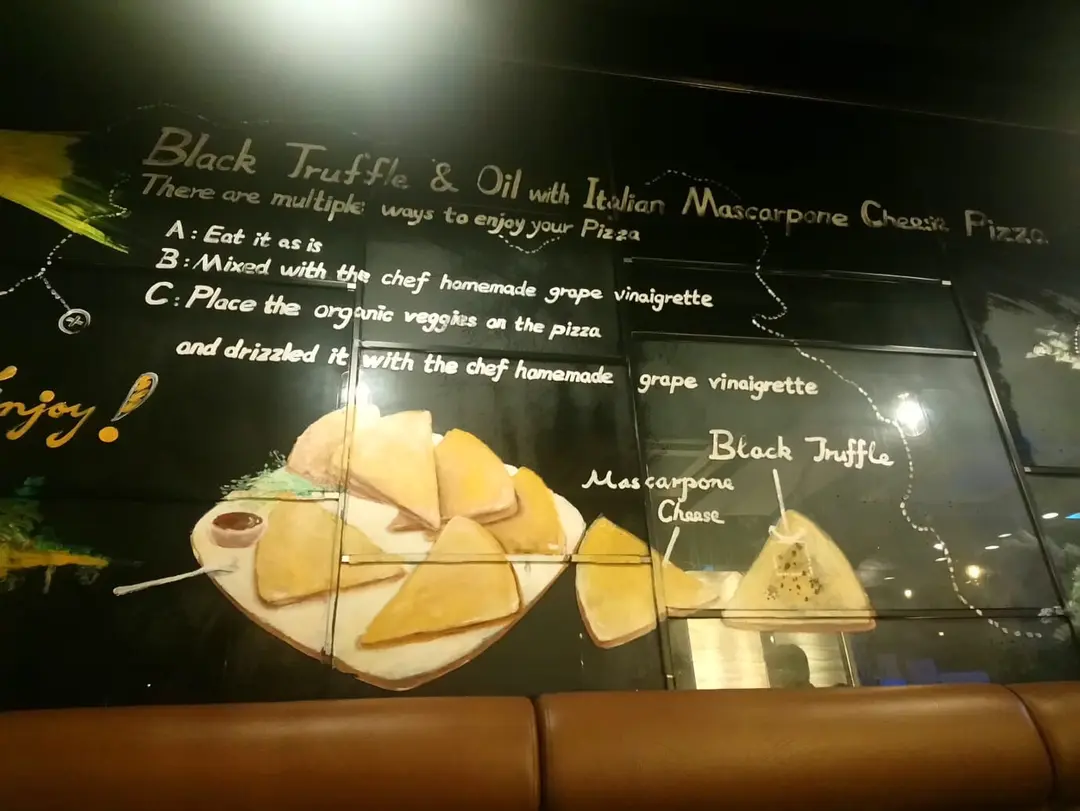 Black Truffle & Oil with Italian Mascarpone Cheese Pizza
There are multiple ways to enjoy your Pizza
A : Eat it as is
B : Mixed with the chef homemade grape vinaigrette
C : Place the organic veggies on the pizza
and drizzled it with the chef homemade grape vinaigrette
njoy!
Black Truffle
Mascarpone
Cheese